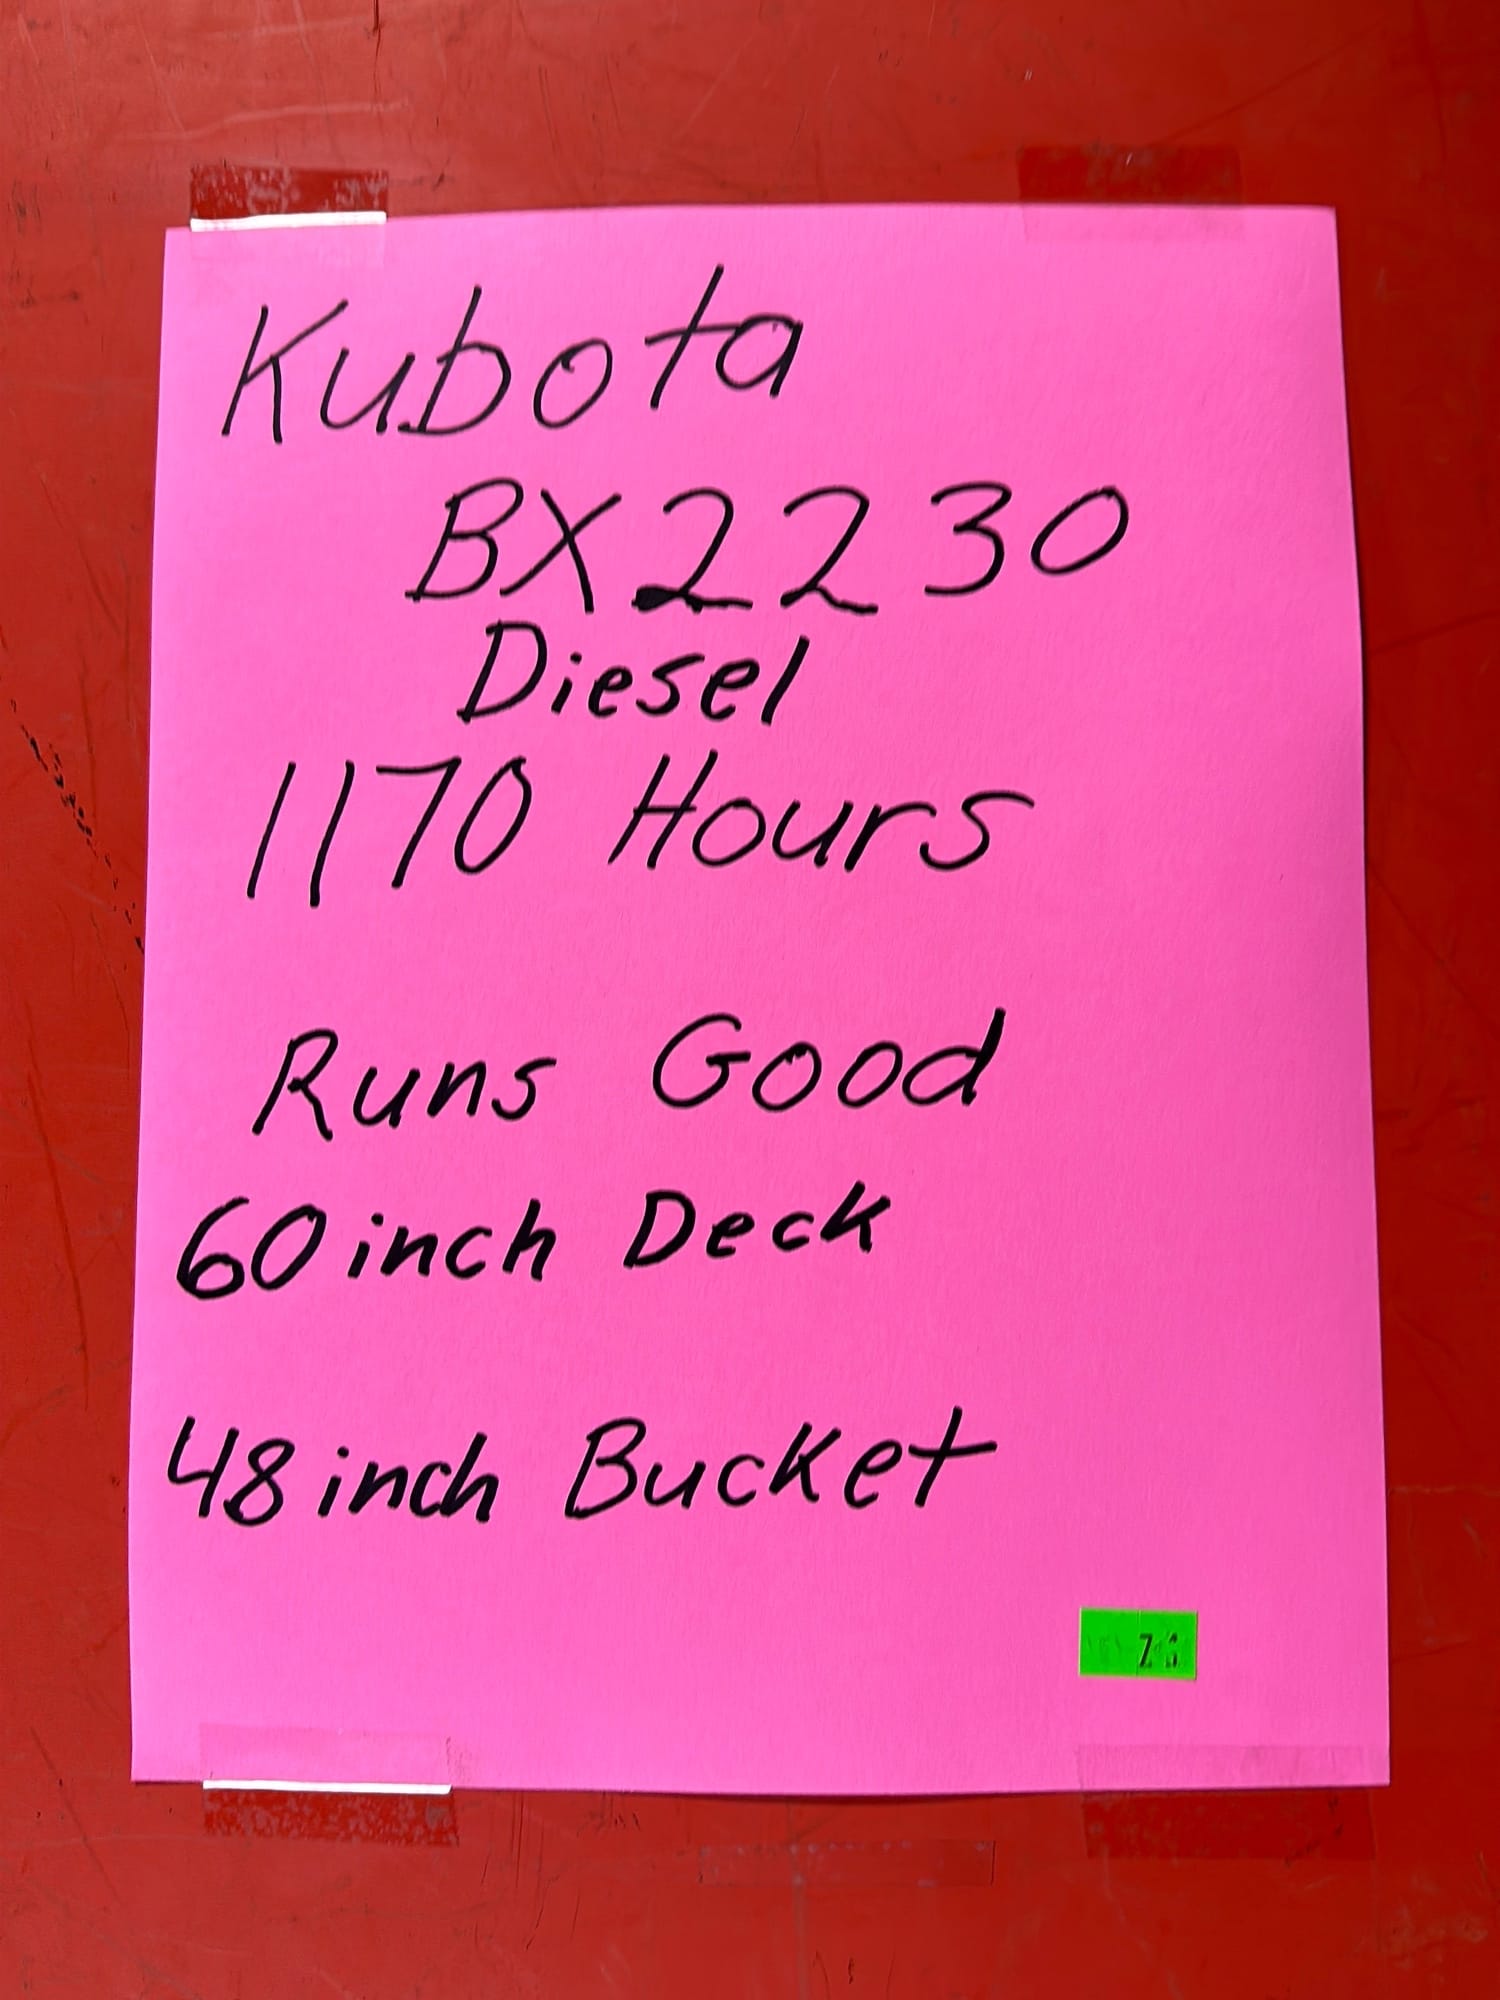 Kubota
BX2230
Diesel
1170 Hours
Runs Good
60 inch Deck
48 inch Bucket